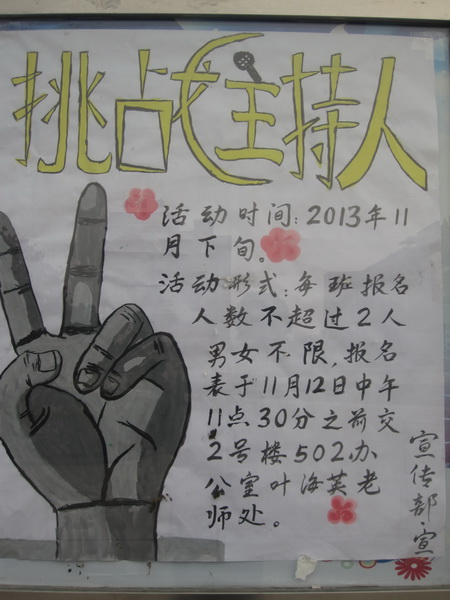 挑战主持人
活动时间：2013年11
月下旬。
活动形式：每班报名
人数不超过2人
男女不限，报名
表于11月12日中午
11点30分之前交
2号楼502办
公室叶海英老
师处。
宣传部宣